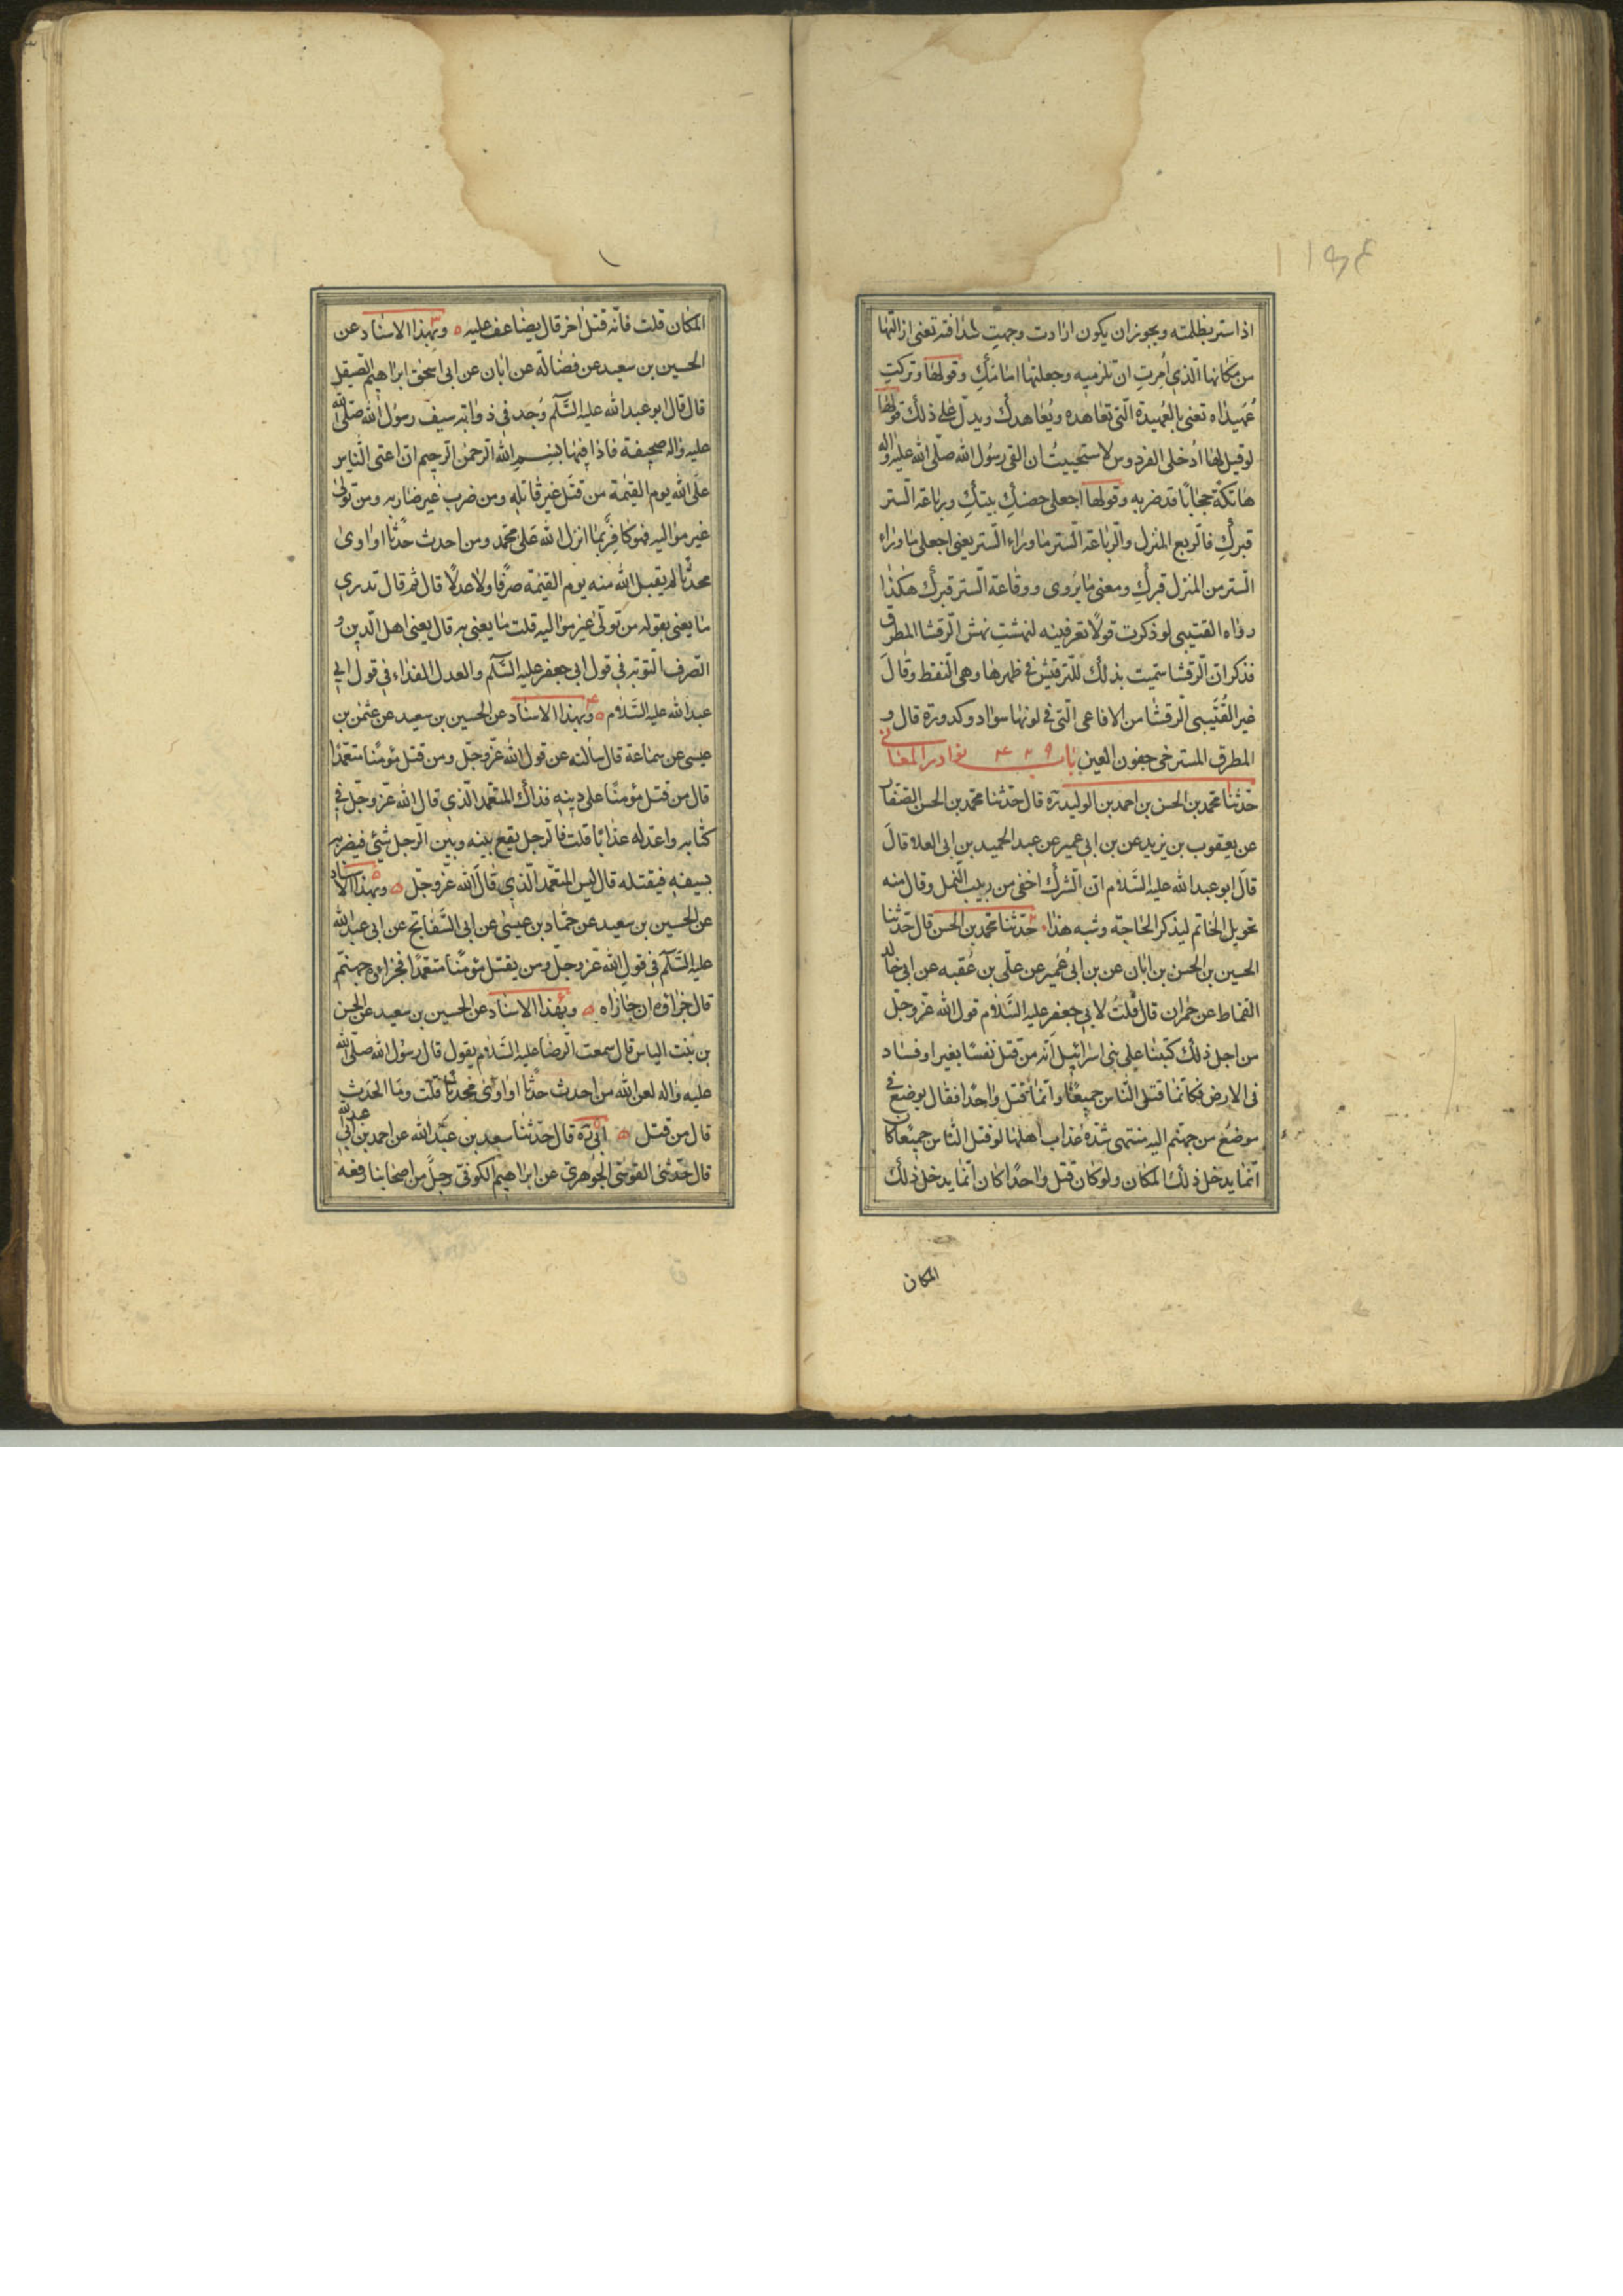 اذا ستر بظلمته ويجوز ان يكون ارادت وجهتِ سدافته تعنى ازالتها
من مكانها الذى اُمِرتِ ان تلزميه وجعلتها امامكِ وقولها وتركتِ
عُهيداه تعنى بالعُهيدة التى تعاهده ويُعاهدك ويدلّ على ذلك قولها
لو قيل لها اُدخلى الفردوس لاستحييتُ ان القى رسُول الله صلّى الله عليه واله
هاتكة حجابًا قد ضربه وقولها اجعلى حصنكِ بيتكِ ورباعة الستر
قبركِ فالربع المنزل والرباعة الستر ما وراء الستر يعنى اجعلى ما وراء
الستر من المنزل قبركِ ومعنى ما يُروى ووقاعة الستر قبركِ هكذا
رواه القتيبى لو ذكرت قولًا تعرفينه لنهشتِ نهش الرقشا المطرق
فذكر ان الرقشا سمّيت بذلك للترقيش فى ظهرها وهى النقط وقالَ
غير القُتَيبى الرقشا من الافاعى التى فى لونها سواد وكدورة قال و
المطرق المسترخى جفون العين باب ٤٢٩ نوادر المعانى
حدّثنا محمد بن الحسن بن احمد بن الوليد ره قال حدّثنا محمد بن الحسن الصفار
عن يعقوب بن يزيد عن بن ابى عمير عن عبد الحميد بن ابى العلا قالَ
قالَ ابو عبد الله عليه السَّلام انّ الشرك اخفى من دبيب النمل وقال منه
تحويل الخاتم ليذكر الحاجة وشبه هذا حدّثنا محمد بن الحسن قال حدّثنا
الحسين بن الحسن بن ابان عن بن ابى عُمير عن علّى بن عُقبه عن ابى خالد
القماط عن حمران قال قلتُ لابى جعفر عليه السَّلام قول الله عزّ وجلّ
من اجل ذلك كتبنا على بنى اسرائيل انّه من قتل نفسًا بغير او فساد
فى الارض فكانّما قتل النّاس جميعًا وانّما قتل واحدًا فقال يوضع فى
موضع من جهنّم اليه منتهى شدّة عذاب اهلها لو قتل النّاس جميعًا كان
انّما يدخل ذلك المكان ولو كان قتل واحدًا كان انّما يدخل ذلك
المكان
المكان قلت فانّه قتل اخر قال يضاعف عليه وبهذا الاسناد عن
الحسين بن سعيد عن فضالة عن ابان عن ابى اسحق ابراهيم الصيقل
قال قال ابو عبد الله عليه السَّلم وُجد فى ذوابة سيف رسول الله صلّى الله
عليه واله صحيفة فاذا فيها بسم الله الرحمن الرحيم ان اعتى النّاس
على الله يوم القيمة من قتل غير قاتله ومن ضرب غير ضاربه ومن تولى
غير مواليه فهو كافر بما انزل الله على محمد ومن احدث حدثًا او اوى
محدثًا لم يقبل الله منه يوم القيمة صرفًا ولا عدلًا قال ثم قال تدرى
ما يعنى بقوله من تولّى غير مواليه قلت ما يعنى به قال يعنى اهل الدين و
الصرف التوبة فى قول ابى جعفر عليه السَّلم والعدل الفداء فى قول ابى
عبد الله عليه السَّلام وبهذا الاسناد عن الحسين بن سعيد عن عثمن بن
عيسى عن سماعة قال سالته عن قول الله عزّ وجلّ ومن قتل مؤمنًا متعمّدًا
قال من قتل مؤمنًا على دينه فذاك المتعمّد الّذى قال الله عزّ وجلّ فى
كتابه واعدّ له عذابًا قلت فالرجل يقع بينه وبين الرجل شئ فيضربه
بسيفه فيقتله قال ليس المتعمّد الّذى قال الله عزّ وجلّ وبهذا الاسناد
عن الحسين بن سعيد عن حمّاد بن عيسى عن ابى السَّفاتج عن ابى عبد الله
عليه السَّلم فى قول الله عزّ وجلّ ومن يقتل مؤمنًا متعمّدًا فجزاؤه جهنّم
قال جزاؤه ان جازاه وبهذا الاسناد عن الحسين بن سعيد عن الحسن
بن بنت الياس قال سمعت الرضا عليه السَّلام يقول قال رسول الله صلّى الله
عليه واله لعن الله من احدث حدثًا او اوى محدثًا قلت وما الحدث
قال من قتل ابى ره قال حدّثنا سعيد بن عبد الله عن احمد بن ابى عبد الله
قال حدّثنى القوسى الجوهرى عن ابراهيم الكوفى رجل من اصحابنا رفعه